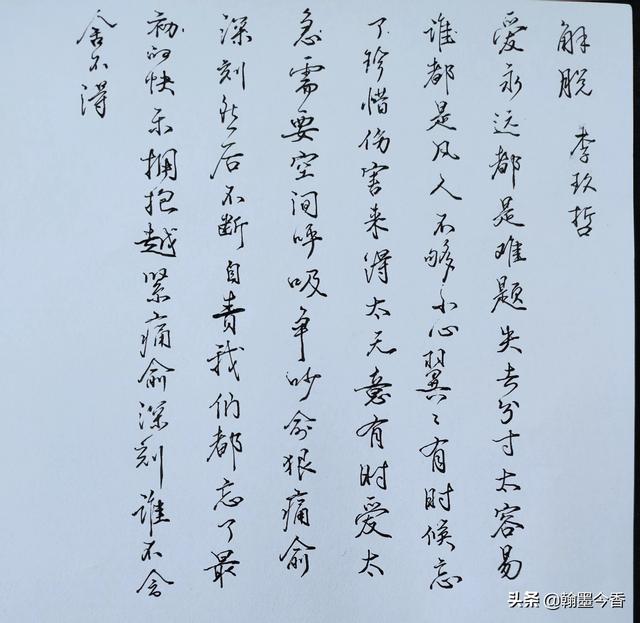 解脱 李玖哲
爱永远都是难题失去分寸太容易
谁都是凡人不够小心翼々有时候忘
了珍惜伤害来得太无意有时爱太
急需要空间呼吸争吵俞狠痛俞
深刻然后不断自责我们都忘了最
初的快乐拥抱越紧痛俞深刻谁不会
舍不得
头条 @翰墨今香